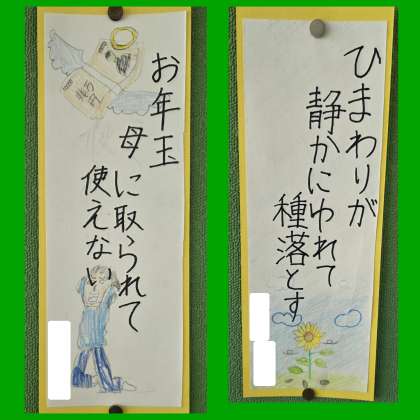 お年玉
母に取られて
使えない
ひまわりが
静かにゆれて
種落とす